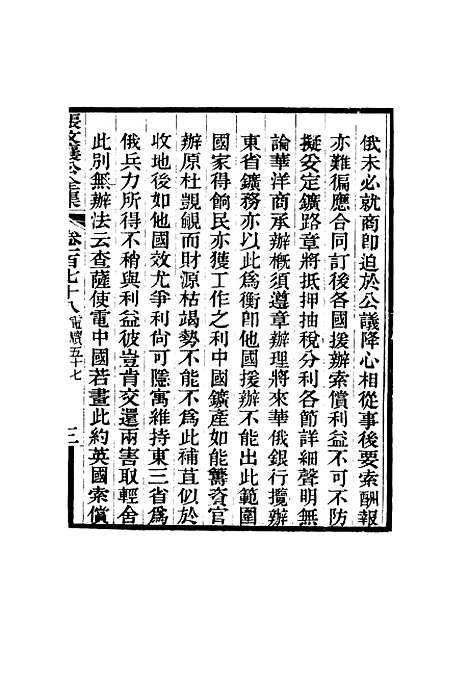 俄未必就商卽迫於公議降心相從事後要索酬報
亦難徧應合同訂後各國援辦索償利益不可不防
擬妥定鑛路章將抵押抽稅分利各節詳細聲明無
論華洋商承辦概須遵章辦理將來華俄銀行攬辦
東省鑛務亦以此爲衡卽他國援辦不能出此範圍
國家得餉民亦獲工作之利中國鑛產如能籌夯官
辦原杜覬覦而財源枯竭勢不能不爲此補苴似於
收地後如他國效尤爭利尙可隱寓維持東三省爲
俄兵力所得不稍與利益彼豈肯交還兩害取輕舍
此別無辦法云查薩使電中國若畫此約英國索償
張文襄公全集 卷一百七十八 電牘五十七 三